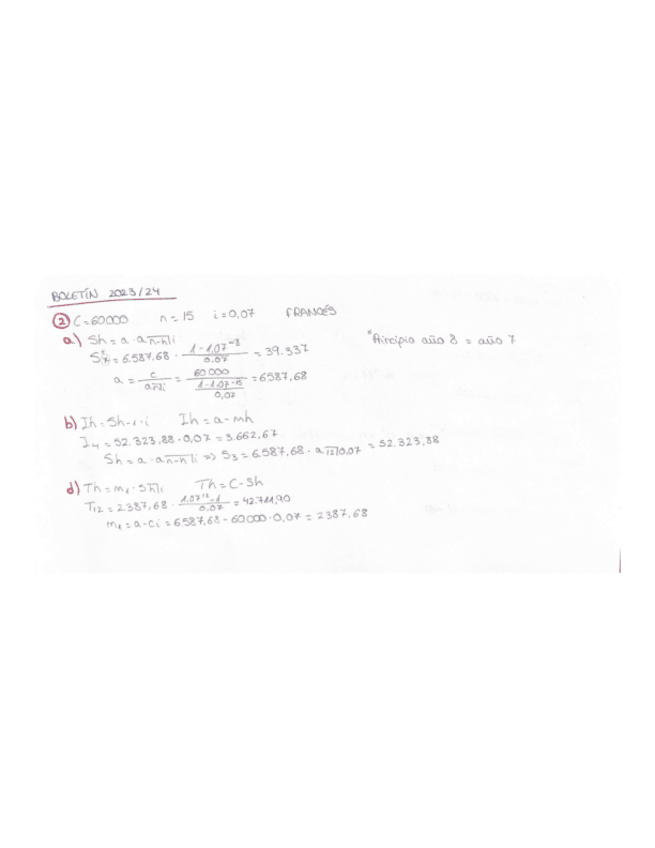 BOLETÍN 2023/24
② C=60000 n=15 i=0,07 FRANCÉS
a) Sh = a · a n-h̅|i *Principio año 8 = año 7
S7 = 6.587,68 · (1-1,07^-8)/0.07 = 39.337
a = c/(a n̅|i) = 60000/((1-1.07^-15)/0,07) = 6587,68
b) Ih = Sh-1 · i Ih = a - mh
I4 = 52.323,88 · 0,07 = 3.662,67
Sh = a · a n-h̅|i => S3 = 6.587,68 · a 12̅|0.07 = 52.323,88
d) Th = m1 · S h̅|i Th = C - Sh
T12 = 2387,68 · (1.07^12-1)/0,07 = 42.711,90
m1 = a - Ci = 6587,68 - 60000 · 0,07 = 2387,68